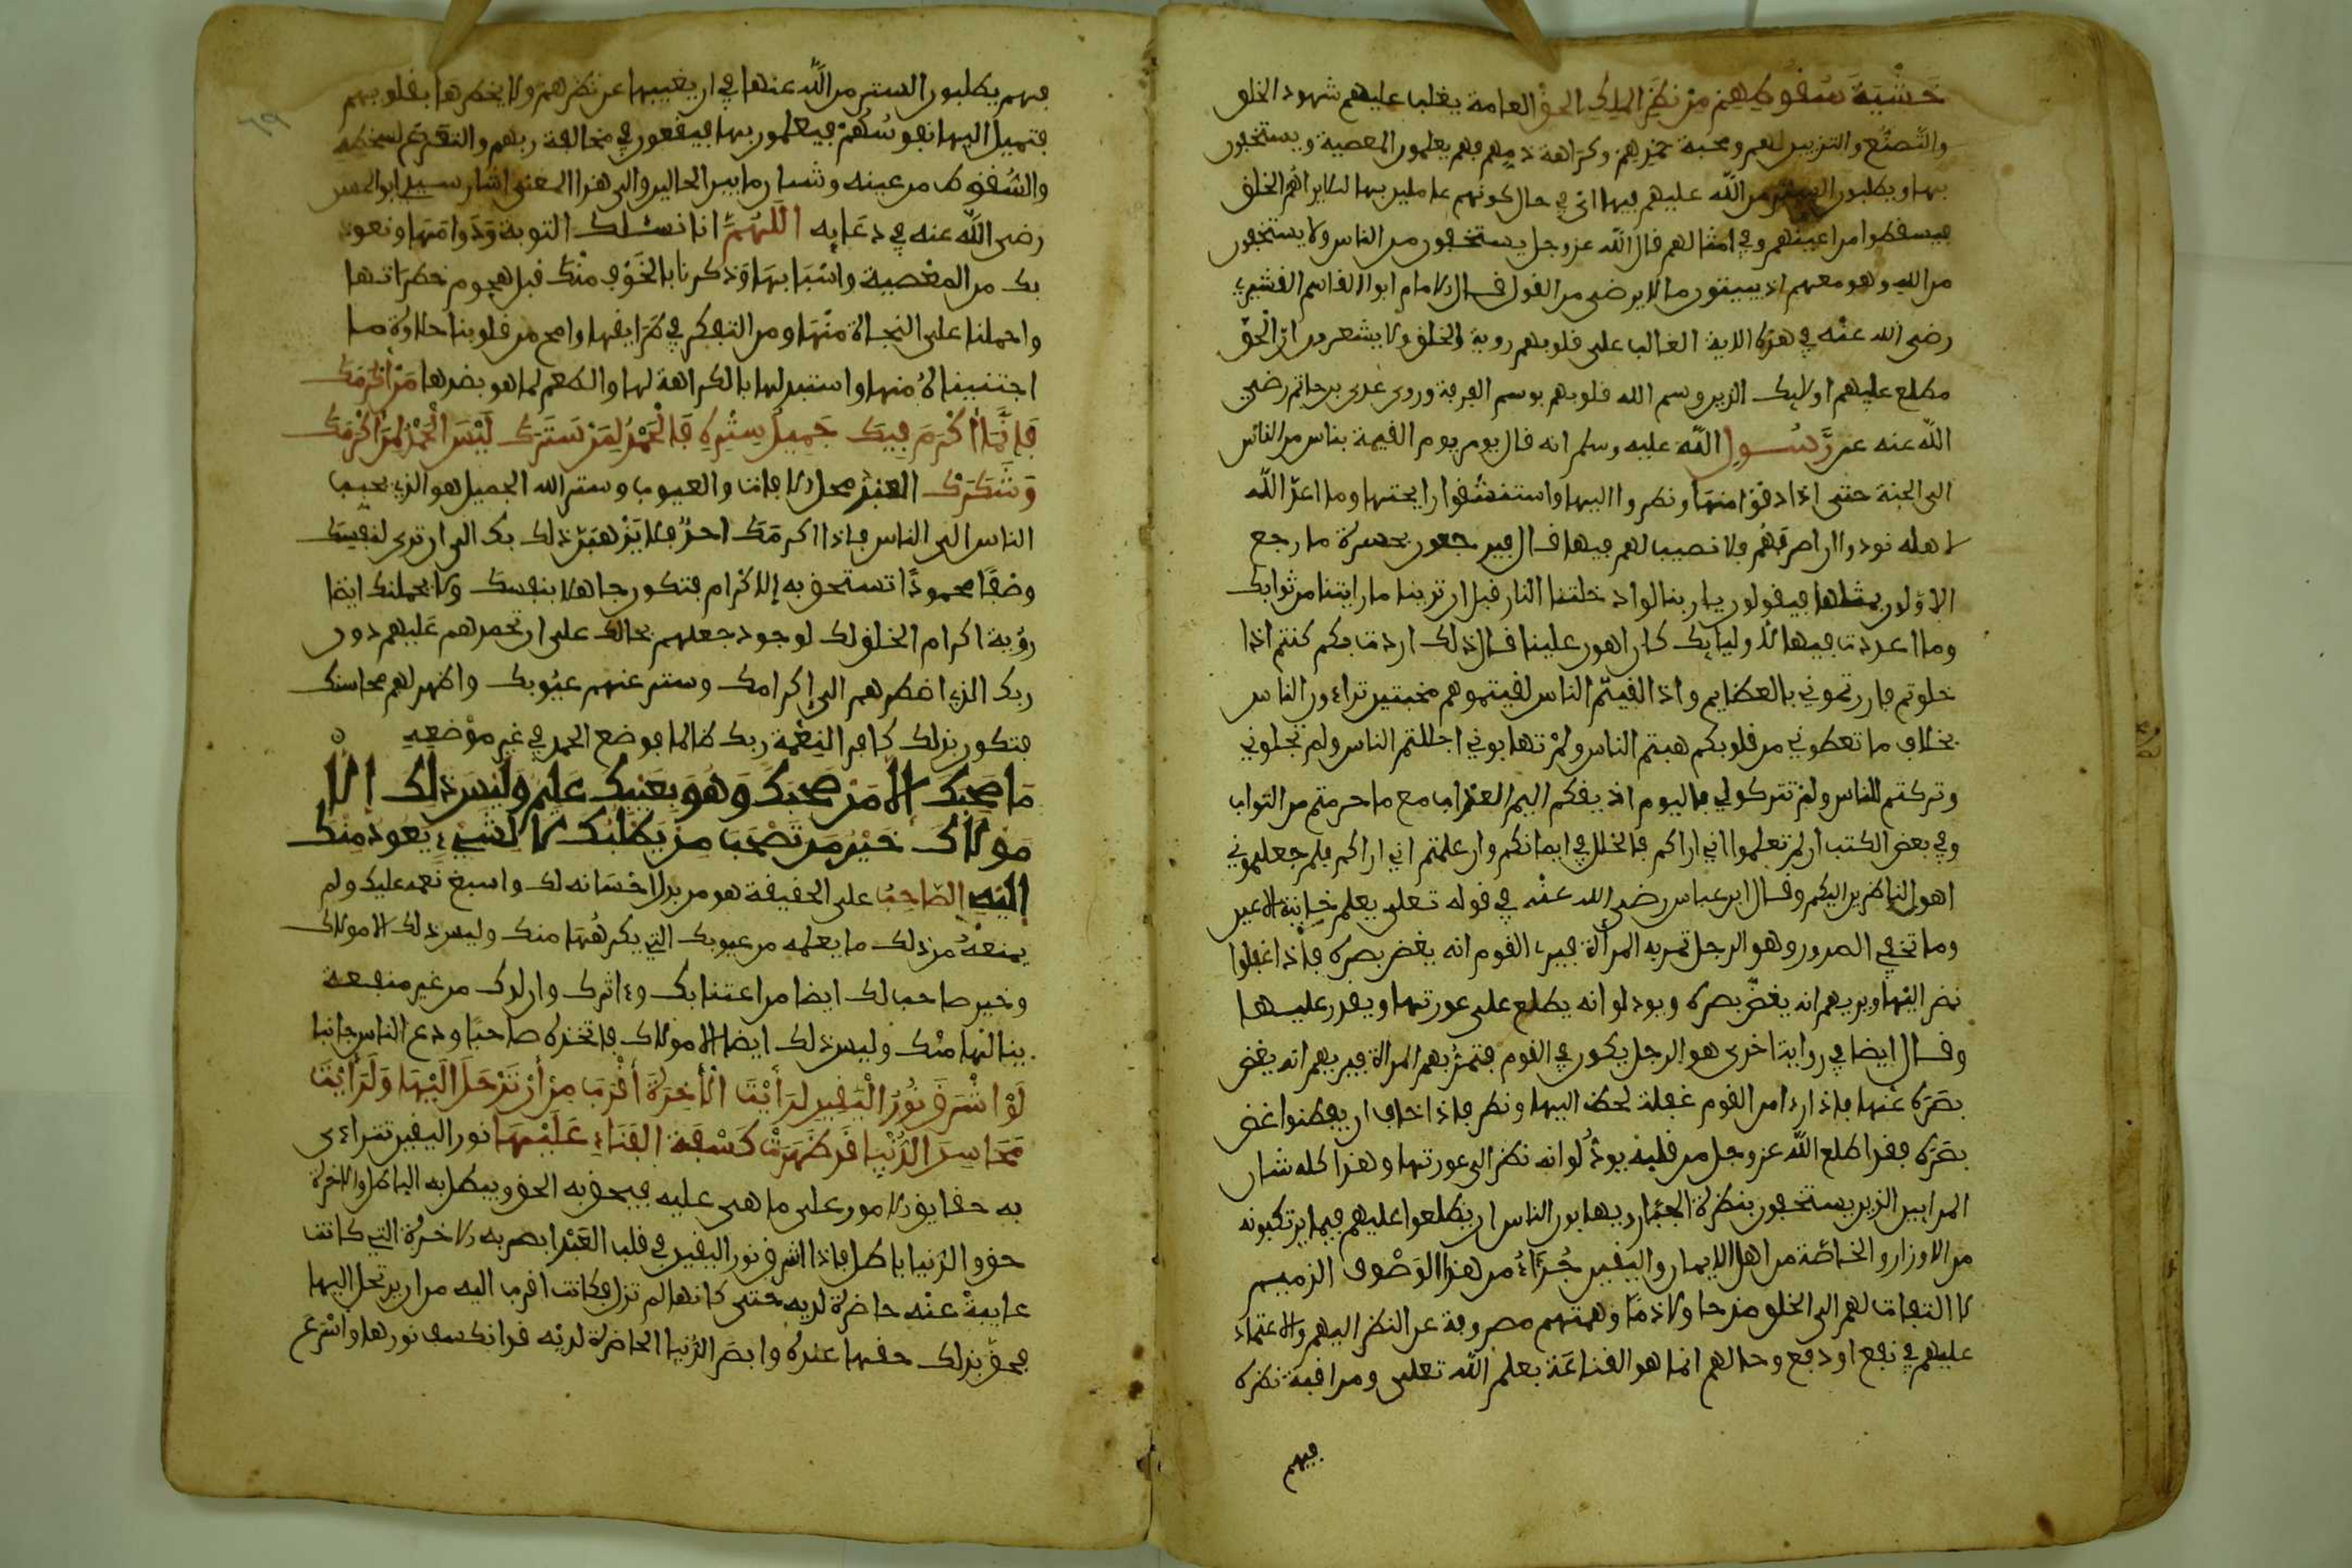 خَشْيَةَ سُقُوطِهِمْ مِنْ نَظَرِ الْمَلِكِ الْحَقِّ العامة يغلب عليهم شهود الخلق
والتَّصنُّع والتزين لهم ومحبة حمدهم وكراهة ذمهم فهم يعلمون المعصية ويستخفون
بها ويطلبون الستر من الله عليهم فيها اي في حال كونهم عاملين بها ليلا يراهم الخلق
فيسقطوا من اعينهم وفي امثالهم قال الله عز وجل يستخفون من الناس ولا يستخفون
من الله وهو معهم اذ يبيتون ما لا يرضى من القول قال الامام ابو القاسم القشيري
رضي الله عنه في هذه الاية الغالب على قلوبهم روية الخلق ولا يشعرون ان الحقّ
مطلع عليهم اوليك الذين وسم الله قلوبهم بوسم الفرقة وروى عدي بن حاتم رضي
الله عنه عن رَّسُول الله عليه وسلم انه قال يومر يوم القيمة بناس من الناس
الى الجنة حتى اذا دنوا منها ونظروا اليها واستنشقوا رايحتها وما اعدّ الله
لاهله نودوا ان اصرفهم فلا نصيب لهم فيها قال فيرجعون بحسرة ما رجع
الاولون بمثلها فيقولون يا ربنا لو ادخلتنا النار قبل ان ترينا ما رايتنا من ثوابك
وما اعددت فيها لاوليايك كان اهون علينا قال ذلك اردت بكم كنتم اذا
خلوتم بارزتموني بالعظايم واذا لقيتم الناس لقيتموهم مخبتين تراءون الناس
بخلاف ما تعطوني من قلوبكم هبتم الناس ولم تهابوني اجللتم الناس ولم تجلوني
وتركتم للناس ولم تتركوا لي فاليوم اذيقكم اليم العذاب مع ما حرمتم من الثواب
وفي بعض الكتب ان لم تعلموا اني اراكم فالخلل في ايمانكم وان علمتم اني اراكم فلم جعلتموني
اهون الناظرين اليكم وقال ابن عباس رضي الله عنه في قوله تعلى يعلم خاينة الاعين
وما تخفي الصدور هو الرجل تمر به المراة فيرى القوم انه يغض بصره فاذا غفلوا
نضر اليها ويريهم انه يغضّ بصره ويود لو انه يطلع على عورتها ويقدر عليها
وقال ايضا في رواية اخرى هو الرجل يكون في القوم فتمرُّ بهم المراة فيريهم انه يغض
بصَره عنها فاذا راى من القوم غفلة لحظ اليها ونظر فاذا خاف ان يفطنوا غض
بصَره فقد اطلع الله عز وجل من قلبه يودُّ لو انه نظر الى عورتها وهذا كله شان
المرايين الذين يستخفون بنظرة الجبّار ويهابون الناس ان يطلعوا عليهم فيما يرتكبونه
من الاوزار والخاصّة من اهل الايمان واليقين جُزءاءُ من هذا الوَصْف الذميم
لا التفات لهم الى الخلق مدحا ولا ذمّا وهمتهم مصروفة عن النظر اليهم والاعتماد
عليهم في نفع او دفع وحالهم انما هو القناعَة بعلم الله تعلى ومراقبة نظره
فيهم
فهم يطلبون الستر من الله عنها في ان يغيبها عن نظرهم ولا يخطرها بقلوبهم
فتميل اليها نفوسُهمْ فيعلمون بها فيقعون في مخالفة ربهم والتعرّض لسخطه
والسُقوط من عينه وشتان ما بين الحالين والى هذا المعنى اشار سيدي ابو الحسن
رضي الله عنه في دعَايه اللَّهُمَّ انا نسئلك التوبة وَدَوامَها ونعوذ
بك من المعْصية واسْبَابهَا وَذكرنا بالخَوْف منْك قبل هجوم خطرَاتها
واحملنا على النجاة منْهَا ومن التفكر في طرَايقها وامح من قلوبنا حلاوة ما
اجتنيناهُ منها واستبدلها بالكراهة لها والطعم لما هو بضدها مَنْ أَكْرَمَكَ
فَإِنَّمَا أَكْرَمَ فِيكَ جَمِيلَ سِتْرِهِ فَالْحَمْدُ لِمَنْ سَتَرَكَ لَيْسَ الْحَمْدُ لِمَنْ أَكْرَمَكَ
وَشَكَرَكَ العَبْدُ محل الافات والعيوب وستر الله الجميل هو الذي يحبب
الناس الى الناس فاذا اكرمَك احدٌ فلا يَذْهَبَنّ ذلك بك الى ان ترى لنفسِكَ
وصْفًا محمودًا تستحق به الاكْرام فتكون جاهلا بنفسك ولا يحملنك ايضا
روُية اكرام الخلق لك لوجود جعلهم بحالك على ان تحمدهم عَليهم دون
ربك الذي اضطرهم الى إكرامك وستر عنهم عيُوبك واظهر لهم محاسنك
فتكون بذلك كافرا لنِعْمة ربك ظالما بوضع الحمد في غير موْضعِهِ
مَا صَحِبَكَ إِلَّا مَنْ صَحِبَكَ وَهُوَ بِعَيْبِكَ عَلِيمٌ وَلَيْسَ ذَلِكَ إِلَّا
مَوْلَاكَ خَيْرُ مَن تَصْحَبُ مَنْ يَطْلُبُكَ لَا لِشَيْءٍ يَعُودُ مِنْكَ
إِلَيْهِ الصّاحِبُ على الحقيقة هو من بذل احْسَانه لك واسبغ نعمه عليك ولم
يمنعْهُ من ذلك ما يعلمه من عيوبك التي يكرهُهَا منك وليس ذلك الا مولاك
وخير صاحب لك ايضا من اعتنا بك وءاثرك وارادك من غير منفعة
ينالها منْك وليس ذلك ايضا الا مولاك فاتخذه صاحبًا ودع الناس جانبا
لَوْ اشْرَقَ نُورُ الْيَقِينِ لَرَأَيْتَ الْآخِرَةَ أَقْرَبَ مِنْ أَنْ تَرْحَلَ إِلَيْهَا وَلَرَأَيْتَ
مَحَاسِنَ الدُّنْيَا قَدْ ظَهَرَتْ كَسْفَةُ الفَنَاءِ عَلَيْهَا نور اليقين تتراءى
به حقايق الامور على ما هي عليه فيحق به الحق ويبطل به الباطل والاخرة
حق والدُنيا باطل فاذا اشرق نور اليقين في قلب العَبْد ابصر به الاخرة التي كانت
غايبةً عنه حاضرة لديه حتى كانها لم تزل فكانت اقرب اليه من ان يرتحل اليها
فحقّ بذلك حقها عنده وابصر الدُنيا الحاضرة لديْه قد انكسف نورها واسْرَعَ